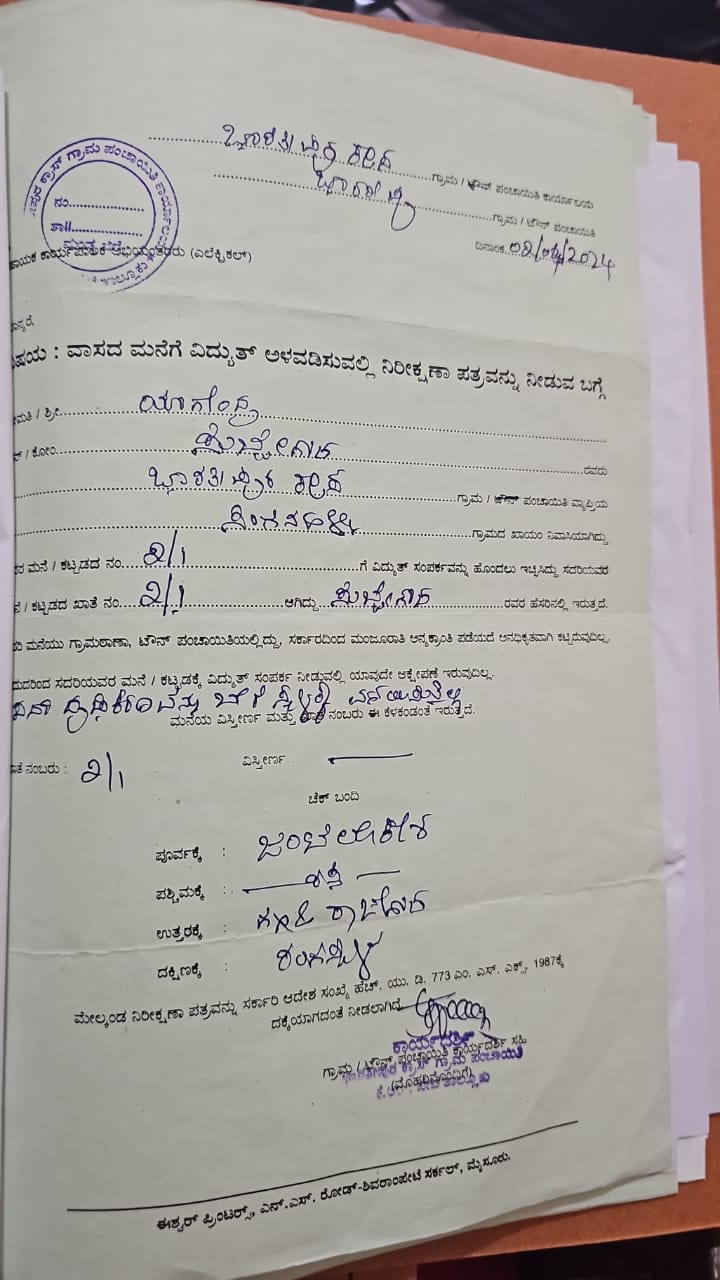 ಭಾರತೀಪುರ ಕ್ರಾಸ್ ಗ್ರಾಮ / ಟೌನ್ ಪಂಚಾಯಿತಿ ಕಾರ್ಯಾಲಯ
ಗ್ರಾಮ / ಟೌನ್ ಪಂಚಾಯಿತಿ
ಪುರ ಕ್ರಾಸ್ ಗ್ರಾಮ ಪಂಚಾಯಿತಿ ಕಾರ್ಯಾಲಯ
ನಂ.
ತಾ॥
ದಿನಾಂಕ 02/04/2024
ಾಯಕ ಕಾರ್ಯಪಾಲಕ ಅಭಿಯಂತರರು (ಎಲೆಕ್ಟ್ರಿಕಲ್)
ಾನ್ಯರೆ,
ಿಷಯ : ವಾಸದ ಮನೆಗೆ ವಿದ್ಯುತ್ ಅಳವಡಿಸುವಲ್ಲಿ ನಿರೀಕ್ಷಣಾ ಪತ್ರವನ್ನು ನೀಡುವ ಬಗ್ಗೆ
ೀಮತಿ / ಶ್ರೀ ಯೋಗೇಂದ್ರ
/ ಕೋಂ ಸುಬ್ಬೇಗೌಡ ರವರು
ಭಾರತೀಪುರ ಕ್ರಾಸ್ ಗ್ರಾಮ / ಟೌನ್ ಪಂಚಾಯಿತಿ ವ್ಯಾಪ್ತಿಯ
ಸಿಂಗನಹಳ್ಳಿ ಗ್ರಾಮದ ಖಾಯಂ ನಿವಾಸಿಯಾಗಿದ್ದು
ರ ಮನೆ / ಕಟ್ಟಡದ ನಂ. ೨/೧ ಗೆ ವಿದ್ಯುತ್ ಸಂಪರ್ಕವನ್ನು ಹೊಂದಲು ಇಚ್ಛಿಸಿದ್ದು ಸದರಿಯವರ
/ ಕಟ್ಟಡದ ಖಾತೆ ನಂ. ೨/೧ ಆಗಿದ್ದು ಸುಬ್ಬೇಗೌಡ ರವರ ಹೆಸರಿನಲ್ಲಿ ಇರುತ್ತದೆ.
ರಿ ಮನೆಯು ಗ್ರಾಮಠಾಣಾ, ಟೌನ್ ಪಂಚಾಯಿತಿಯಲ್ಲಿದ್ದು, ಸರ್ಕಾರದಿಂದ ಮಂಜೂರಾತಿ ಅನ್ಯಕ್ರಾಂತಿ ಪಡೆಯದೆ ಅನಧಿಕೃತವಾಗಿ ಕಟ್ಟಿರುವುದಿಲ್ಲ.
ುದರಿಂದ ಸದರಿಯವರ ಮನೆ / ಕಟ್ಟಡಕ್ಕೆ ವಿದ್ಯುತ್ ಸಂಪರ್ಕ ನೀಡುವಲ್ಲಿ ಯಾವುದೇ ಆಕ್ಷೇಪಣೆ ಇರುವುದಿಲ್ಲ.
ಮನೆಯ ವಿಸ್ತೀರ್ಣ ಮತ್ತು ಖಾತೆ ನಂಬರು ಈ ಕೆಳಕಂಡಂತೆ ಇರುತ್ತದೆ.
ಾತೆ ನಂಬರು : ೨/೧ ವಿಸ್ತೀರ್ಣ :
ಚೆಕ್ ಬಂದಿ
ಪೂರ್ವಕ್ಕೆ :
ಪಶ್ಚಿಮಕ್ಕೆ : ರಸ್ತೆ
ಉತ್ತರಕ್ಕೆ :
ದಕ್ಷಿಣಕ್ಕೆ :
ಮೇಲ್ಕಂಡ ನಿರೀಕ್ಷಣಾ ಪತ್ರವನ್ನು ಸರ್ಕಾರಿ ಆದೇಶ ಸಂಖ್ಯೆ ಹೆಚ್. ಯು. ಡಿ. 773 ಎಂ. ಎಸ್. ಎಕ್ಸ್. 1987ಕ್ಕೆ
ದಕ್ಕೆಯಾಗದಂತೆ ನೀಡಲಾಗಿದೆ
ಕಾರ್ಯದರ್ಶಿ
ಗ್ರಾಮ / ಟೌನ್ ಪಂಚಾಯಿತಿ ಕಾರ್ಯದರ್ಶಿ ಸಹಿ
ಕ್ರಾಸ್ ಗ್ರಾಮ ಪಂಚಾಯಿತಿ
(ಮೊಹರಿನೊಂದಿಗೆ)
ಈಶ್ವರ್ ಪ್ರಿಂಟರ್ಸ್, ಎನ್.ಎಸ್. ರೋಡ್-ಶಿವರಾಂಪೇಟೆ ಸರ್ಕಲ್, ಮೈಸೂರು.